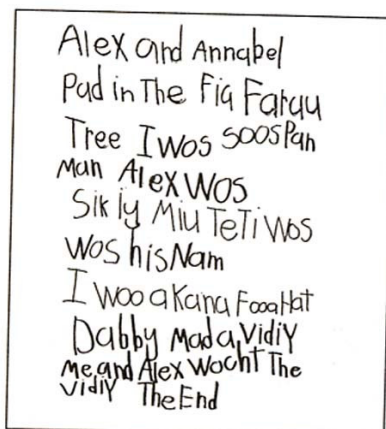 Alex and Annabel
Pad in The Fig Faruu
Tree I wos soosPan
Man Alex wos
Sik ly Miu TeTi wos
wos his Nam
I woo a Kana FoooHat
Dabby Mad a vidiy
me and Alex wocht The
vidiy The End